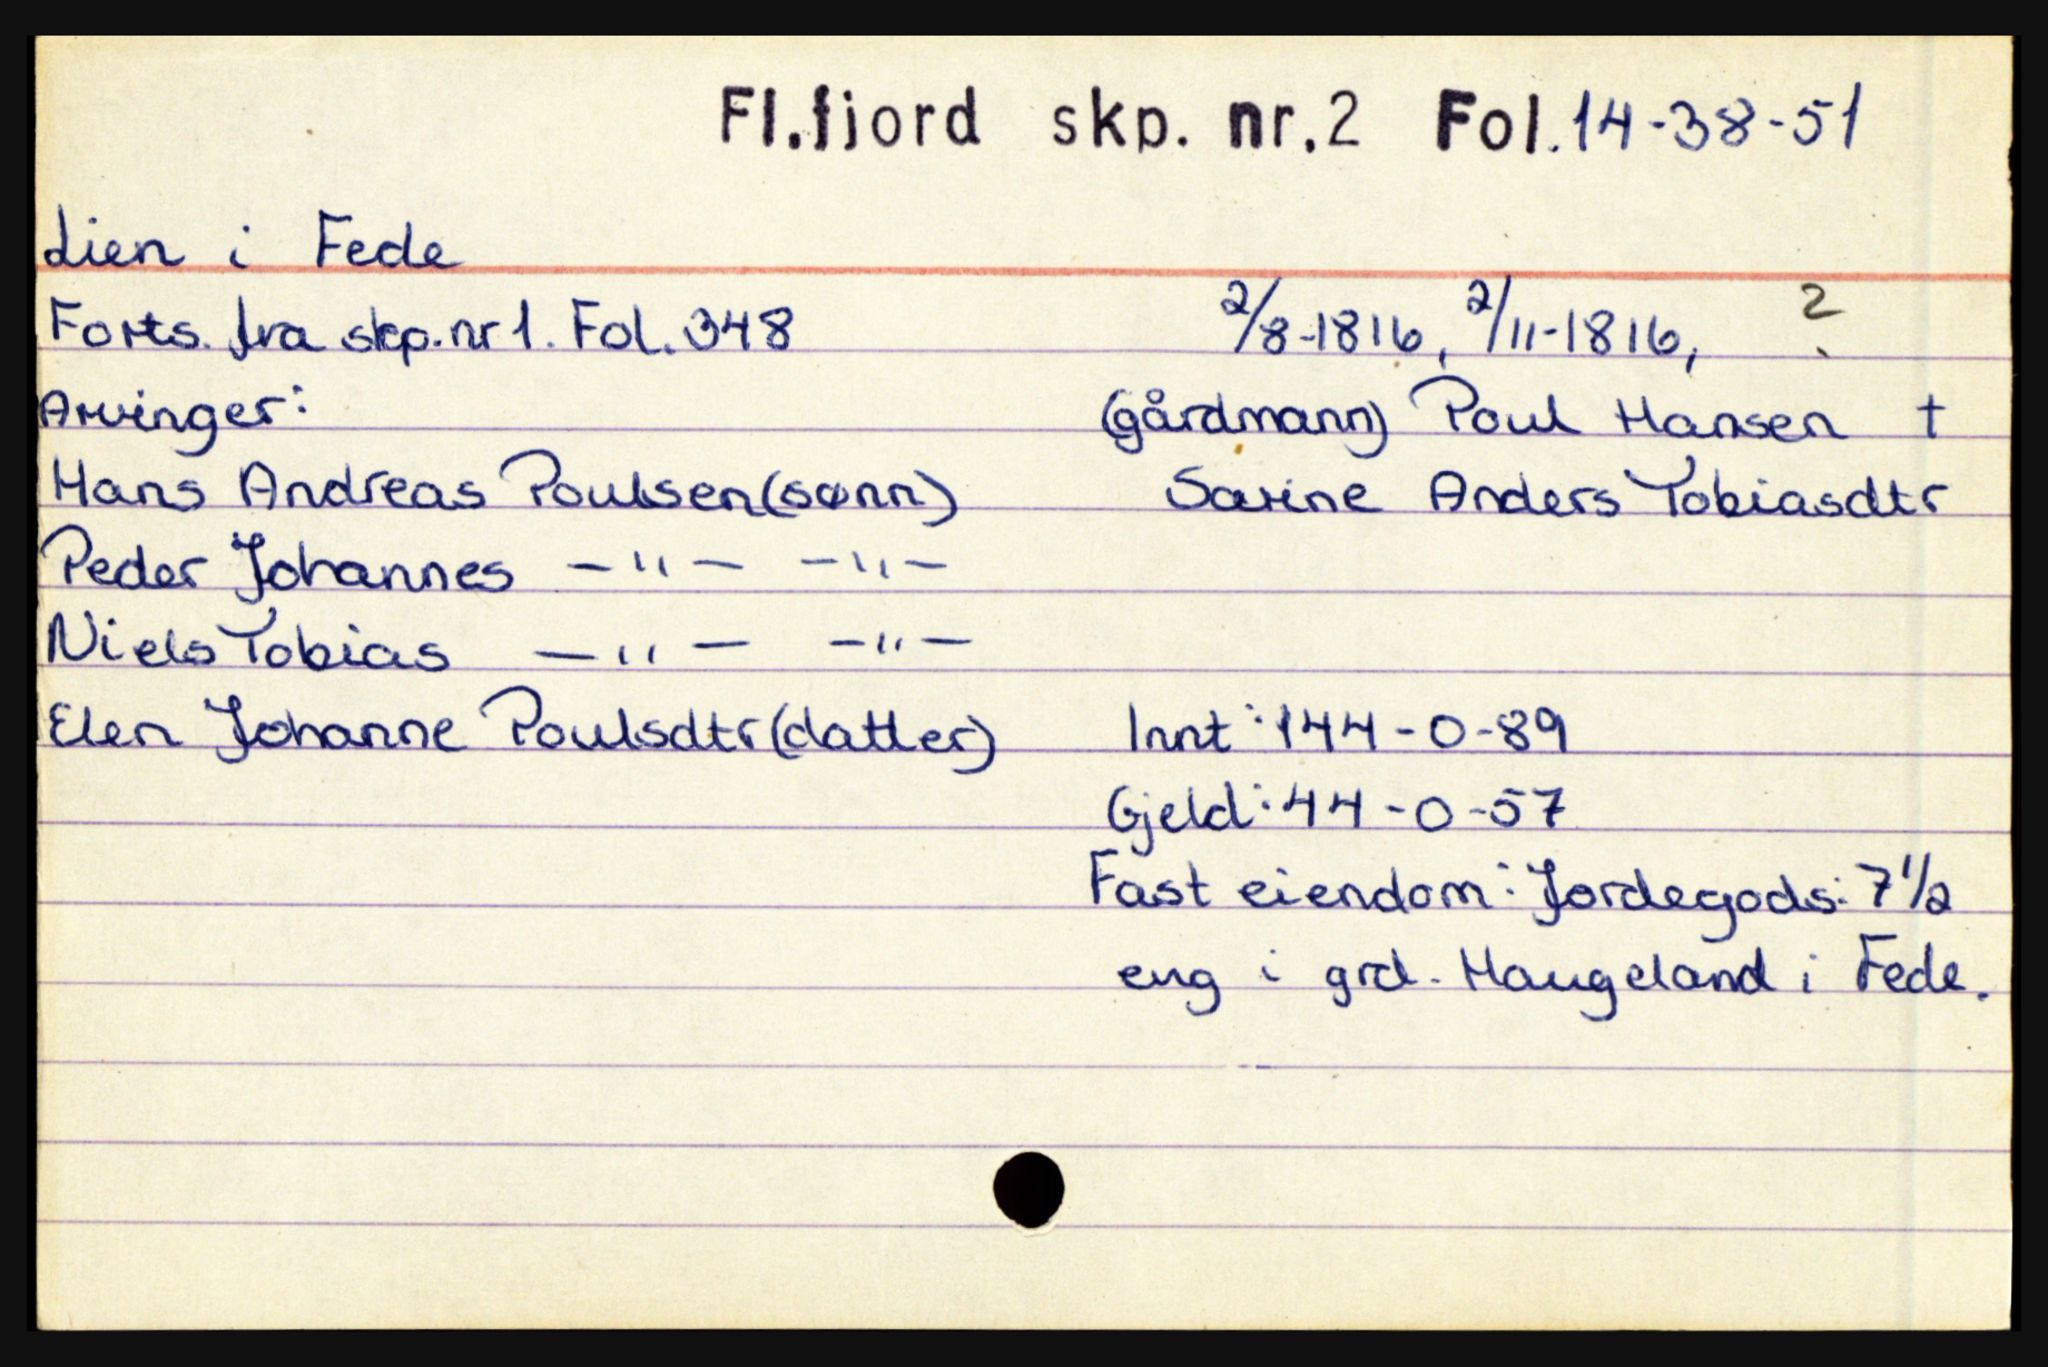 Fl.fjord skp. nr.2 Fol.14-38-51
Lien i Fede
Forts. fra skp.nr 1. Fol. 348 2/8-1816, 2/11-1816, ?
Arvinger: (gårdmann) Poul Hansen †
Hans Andreas Poulsen (sønn) Sarine Anders Tobiasdtr
Peder Johannes —"— —"—
Niels Tobias —"— —"—
Elen Johanne Poulsdtr (datter) Innt: 144-0-89
Gjeld: 44-0-57
Fast eiendom: Jordegods: 7 1/2
eng i grd. Haugeland i Fede.